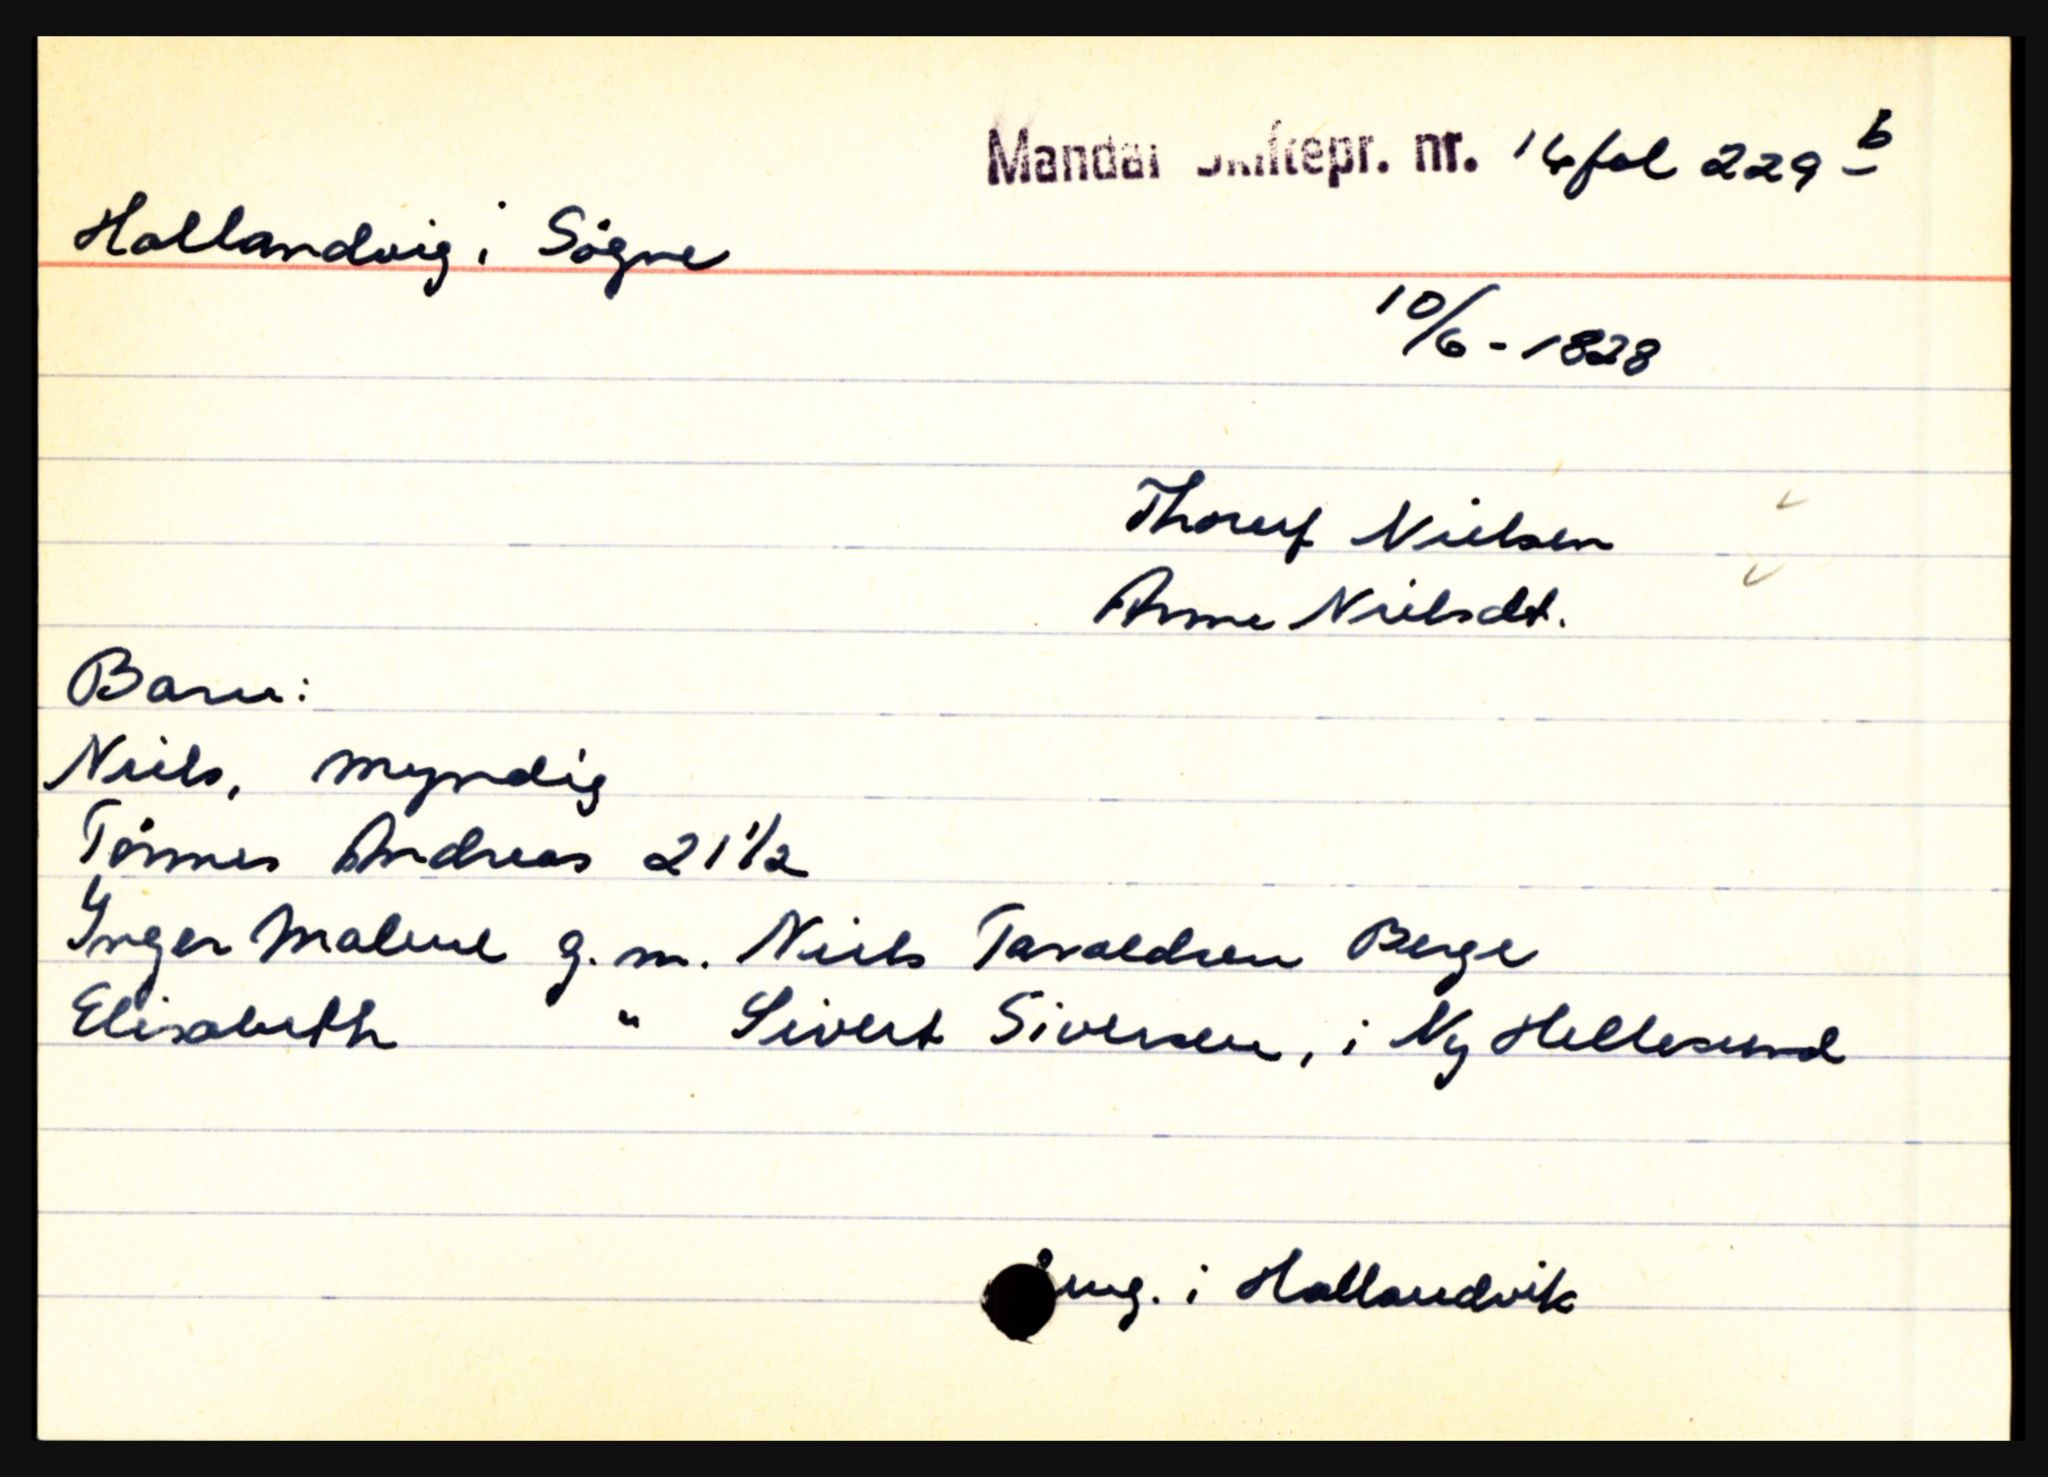 Mandal Skiftepr. nr. 14 fol 229 b
Hollandvig i Sögne
10/6 - 1828
Thorur Nielsen
Anne Nielsdt.
Barn:
Niels, myndig
Tönnes Andreas 21 1/2
Inger Malene g. m. Niels Tavaldsen Berge
Elisabeth " Sivert Siversen, i Ny Hellesund
ug. i Hallandvik